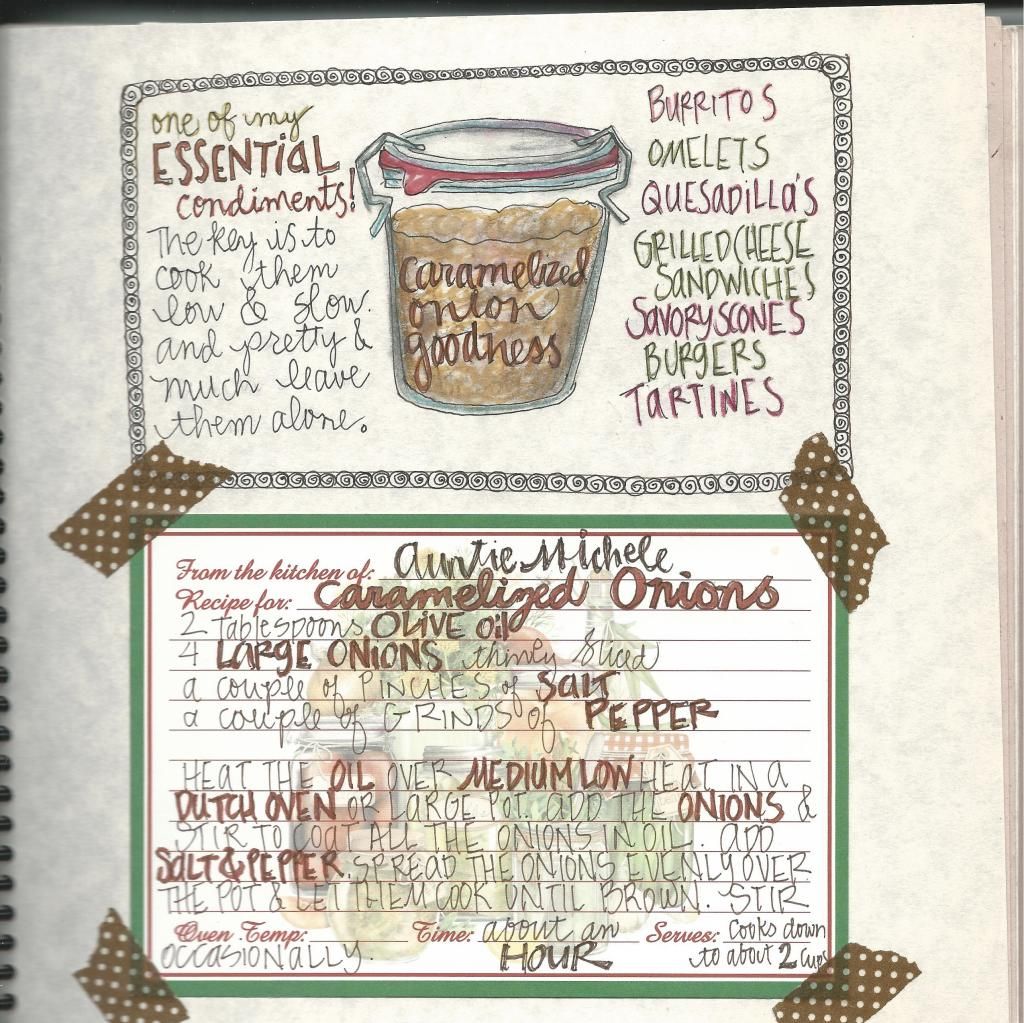 one of my
ESSENTIAL
condiments!
The key is to
cook them
low & slow.
and pretty &
much leave
them alone.
caramelized
onion
goodness
BURRITOS
OMELETS
QUESADILLA'S
GRILLED CHEESE
SANDWICHES
SAVORY SCONES
BURGERS
TARTINES
From the kitchen of: Auntie Michele
Recipe for: Caramelized Onions
2 Tablespoons OLIVE Oil
4 LARGE ONIONS thinly sliced
a couple of PINCHES of SALT
a couple of GRINDS of PEPPER
HEAT THE OIL OVER MEDIUM LOW HEAT IN A
DUTCH OVEN OR LARGE POT. ADD THE ONIONS &
STIR TO COAT ALL THE ONIONS IN OIL. ADD
SALT & PEPPER. SPREAD THE ONIONS EVENLY OVER
THE POT & LET THEM COOK UNTIL BROWN. STIR
Oven Temp: Time: about an Serves: Cooks down
OCCASIONALLY. HOUR to about 2 cups